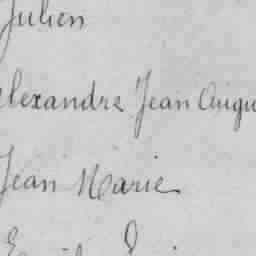 Julien
Alexandre Jean Augu
Jean Marie